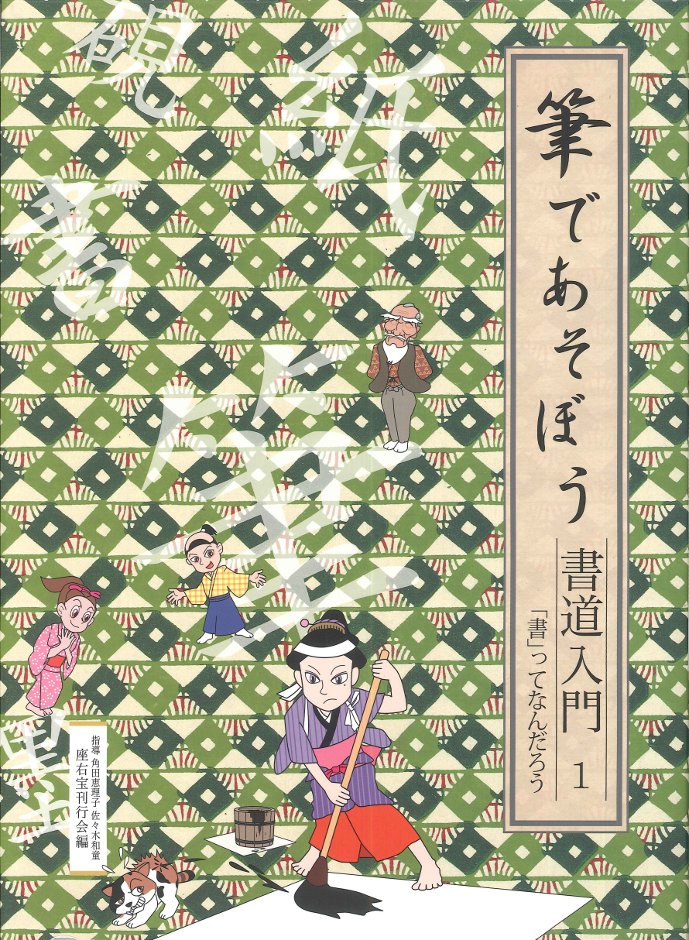 筆であそぼう
書道入門 1
「書」ってなんだろう
硯
紙
書
筆
墨
指導 角田恵理子 佐々木和童
座右宝刊行会編